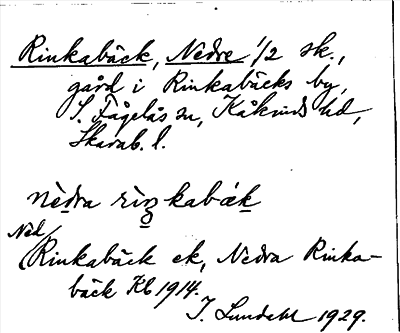 Rinkabäck, Nedre 1/2 sk.,
gård i Rinkabäcks by,
S. Fågelås sn, Kåkinds hd,
Skarab. l.
nèdra rìŋkabäk
Ned/
Rinkabäck ek, Nedra Rinka-
bäck Kb 1914.
J. Lundahl 1929.